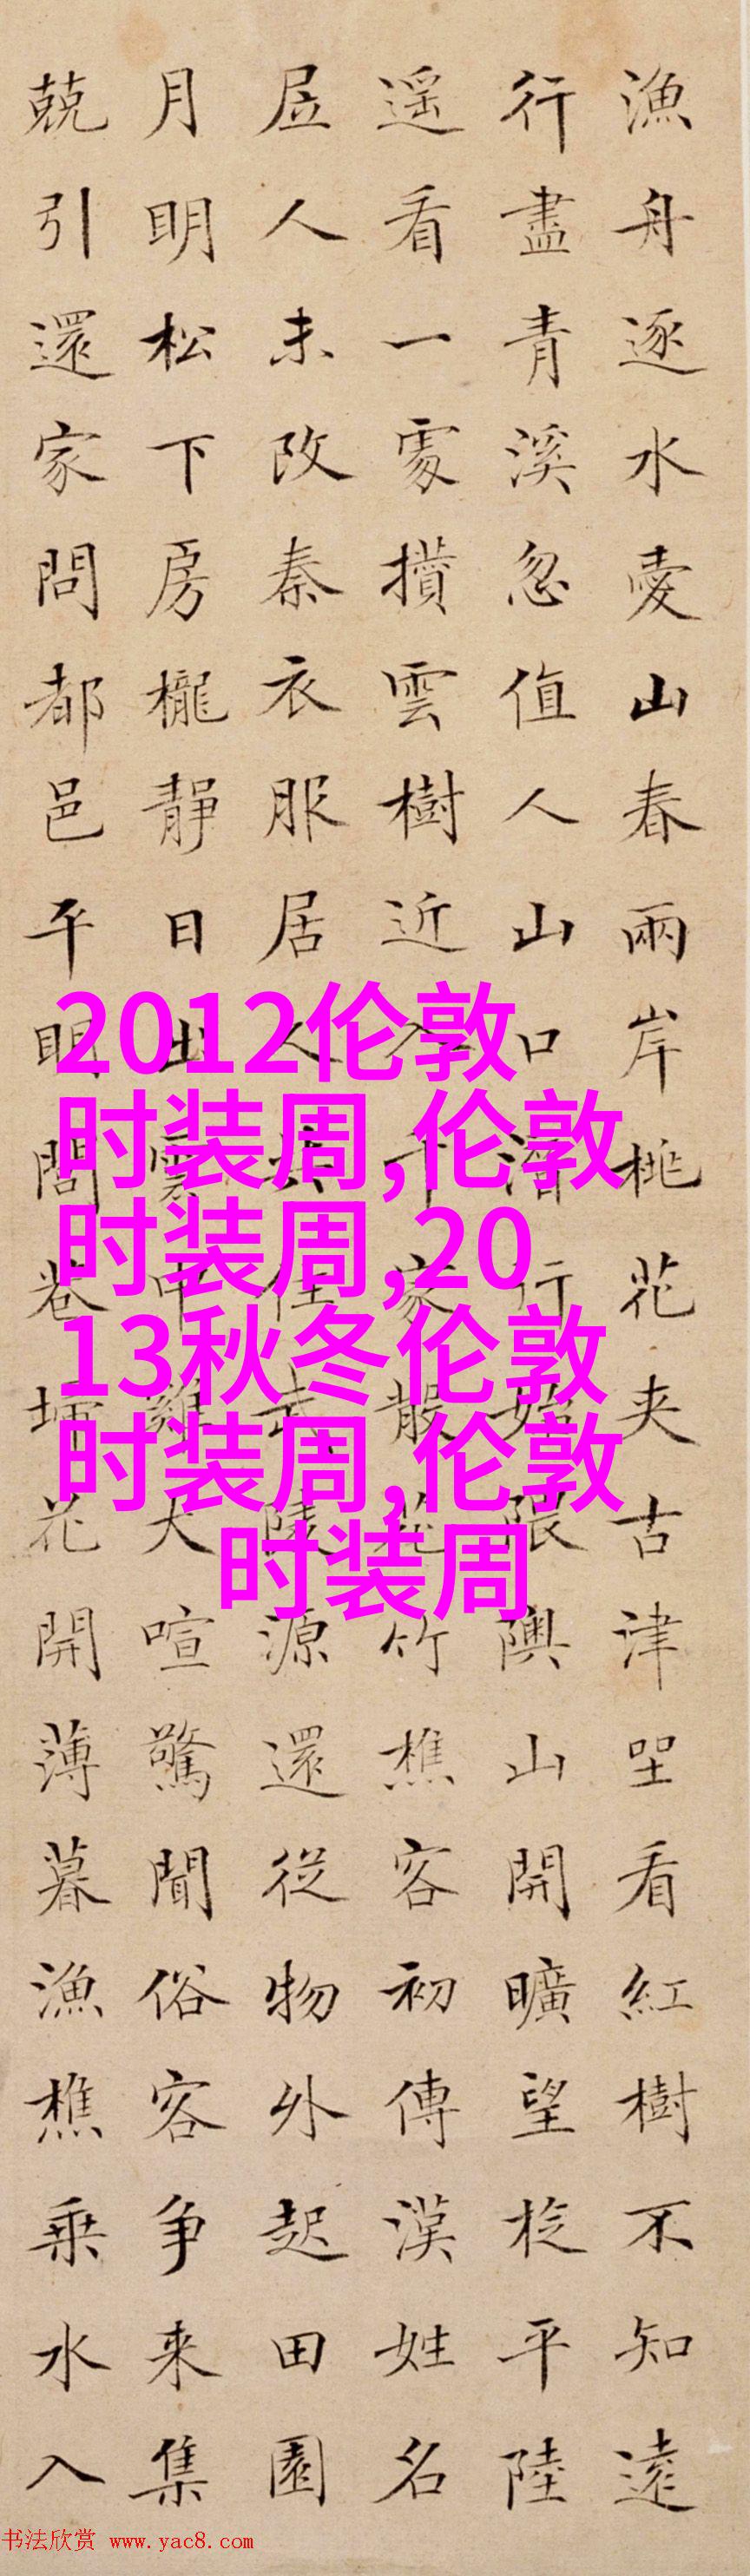 漁舟逐水愛山春兩岸桃花夾古津坐看紅樹不知遠
行盡青溪忽值人山口潛行始隈隩山開曠望旋平陸
遥看一處攢雲樹近入千家散花竹樵客初傳漢姓名
居人未改秦衣服居人共住武陵源還從物外起田園
月明松下房櫳靜日出雲中雞犬喧驚聞俗客争来集
兢引還家問都邑平明閭巷掃花開薄暮漁樵乗水入
2012伦敦
时装周,伦敦
时装周,20
13秋冬伦敦
时装周,伦敦
时装周
书法欣赏 www.yac8.com